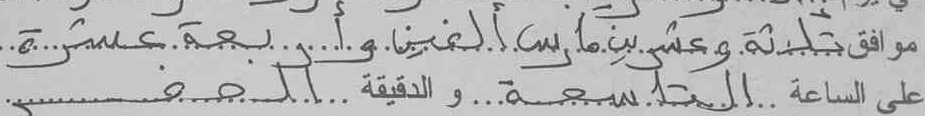 موافق ثلاثة وعشرين مارس ألفين وأربعة عشرة
على الساعة التاسعة و الدقيقة الصفر